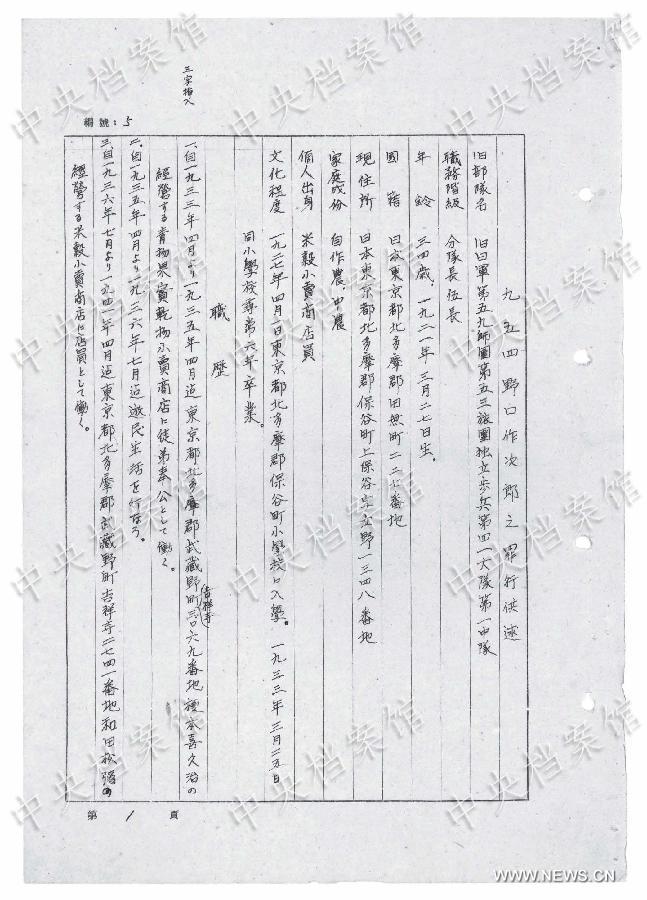 三字插入
編號：5
九五四 野口作次郎之罪行供述
旧部隊名 旧日軍第五九師團第五三旅團独立歩兵第四一大隊第一中隊
職務階級 分隊長伍長
年齢 三四歳、一九二一年三月二七日生。
國籍 日本東京都北多摩郡田無町二二七番地
現住所 日本東京都北多摩郡保谷町上保谷字立野一三四八番地
家庭成份 自作農、中農
個人出身 米穀小賣商店員
文化程度 一九二七年四月一日東京都北多摩郡保谷町小學校に入學。一九三三年三月二五日
同小學校尋常第六年卒業。
職歴
一、自一九三三年四月より一九三五年四月迄東京都北多摩郡武蔵野町吉祥寺三〇六九番地種本喜久治の
經營する青物果實乾物小賣商店に徒弟奉公として働く。
二、自一九三五年四月より一九三六年七月迄遊民生活を行なう。
三、自一九三六年七月より一九四一年四月迄東京都北多摩郡武蔵野町吉祥寺二七四一番地和田松陽の
經營する米穀小賣商店に店員として働く。
第 1 頁
中央档案馆
中央档案馆
中央档案馆
中央档案馆
中央档案馆
中央档案馆
WWW.NEWS.CN